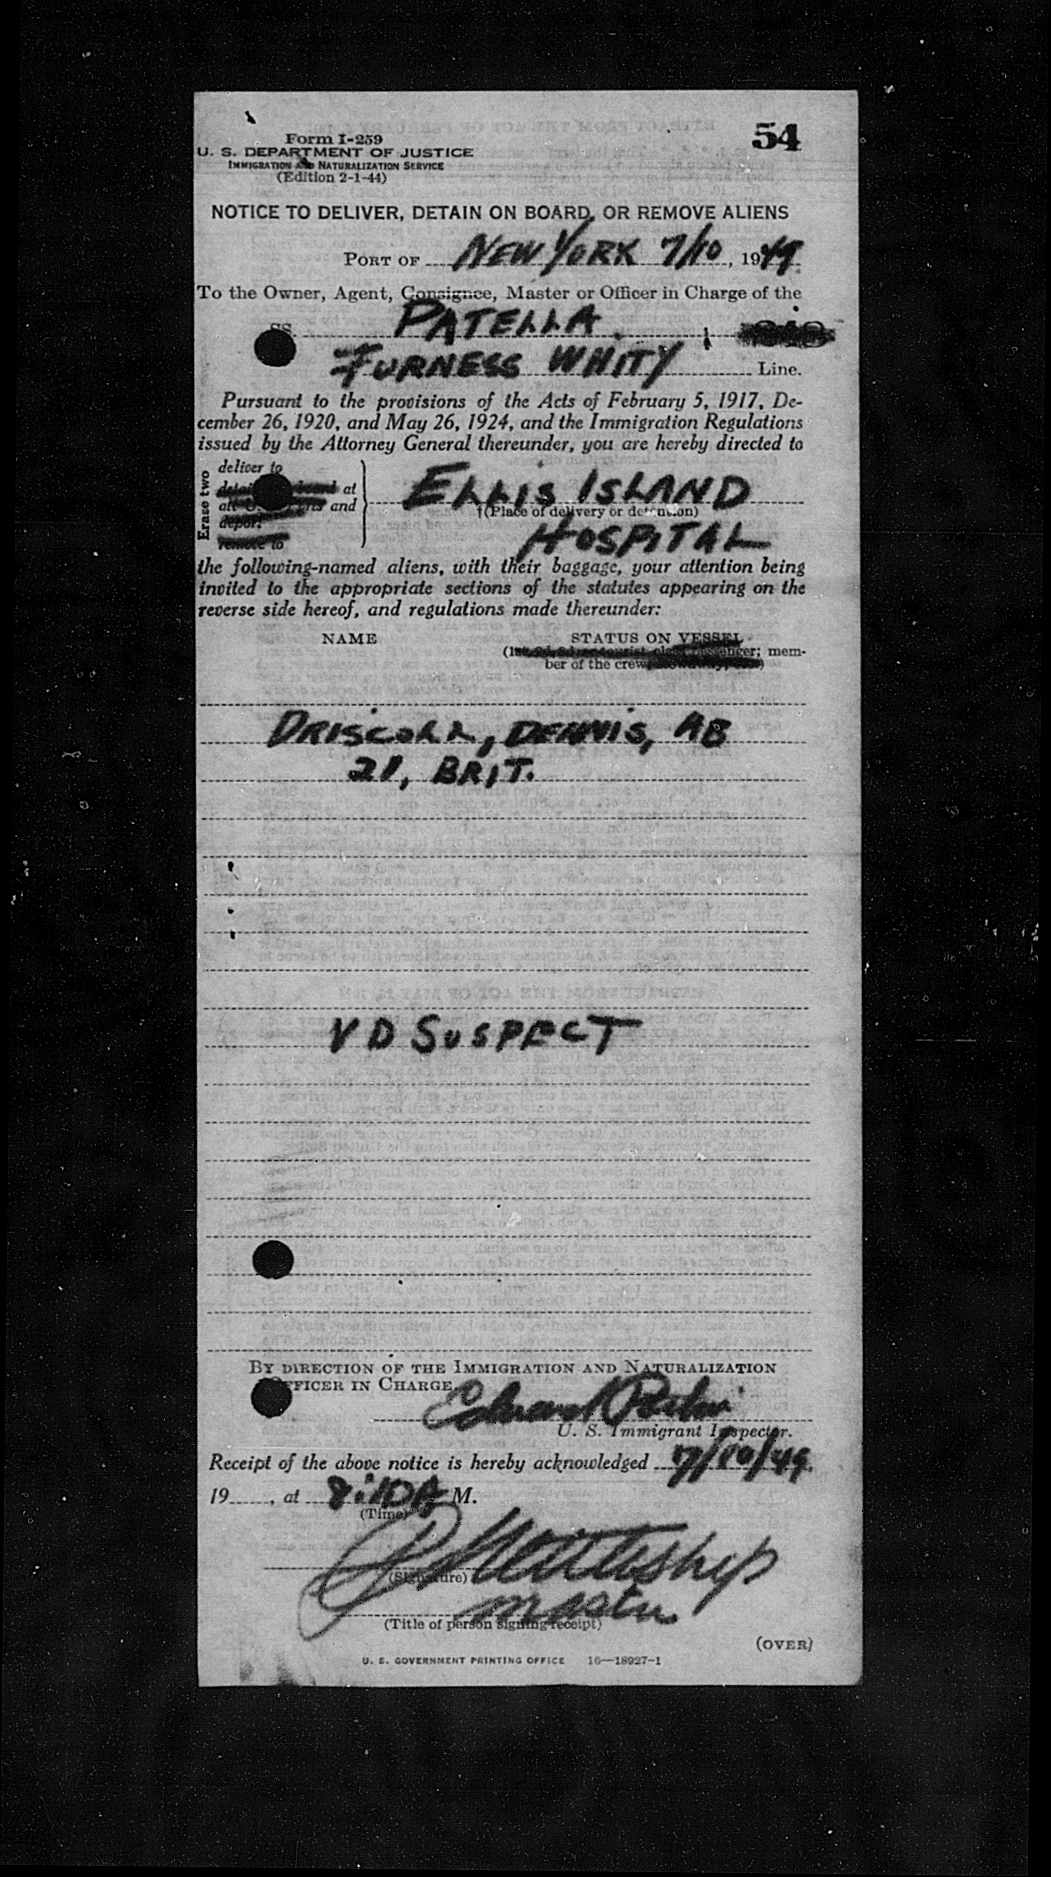 54
Form I-259
U. S. DEPARTMENT OF JUSTICE
IMMIGRATION AND NATURALIZATION SERVICE
(Edition 2-1-44)
NOTICE TO DELIVER, DETAIN ON BOARD, OR REMOVE ALIENS
PORT OF NEW YORK 7/10, 1949
To the Owner, Agent, Consignee, Master or Officer in Charge of the
SS. PATELLA
FURNESS WHITY Line.
Pursuant to the provisions of the Acts of February 5, 1917, De-
cember 26, 1920, and May 26, 1924, and the Immigration Regulations
issued by the Attorney General thereunder, you are hereby directed to
Erase two
deliver to
at
and
deport
remove to
ELLIS ISLAND
(Place of delivery or detention)
HOSPITAL
the following-named aliens, with their baggage, your attention being
invited to the appropriate sections of the statutes appearing on the
reverse side hereof, and regulations made thereunder:
NAME STATUS ON VESSEL
(1st, 2d, 3d, or tourist class passenger; mem-
ber of the crew
DRISCOLL, DENNIS, AB
21, BRIT.
VD SUSPECT
BY DIRECTION OF THE IMMIGRATION AND NATURALIZATION
OFFICER IN CHARGE
Edward
U. S. Immigrant Inspector.
Receipt of the above notice is hereby acknowledged 7/10/49.
19, at 8:10 A M.
(Time)
(Signature)
Master
(Title of person signing receipt)
(OVER)
U. S. GOVERNMENT PRINTING OFFICE 16—18927-1